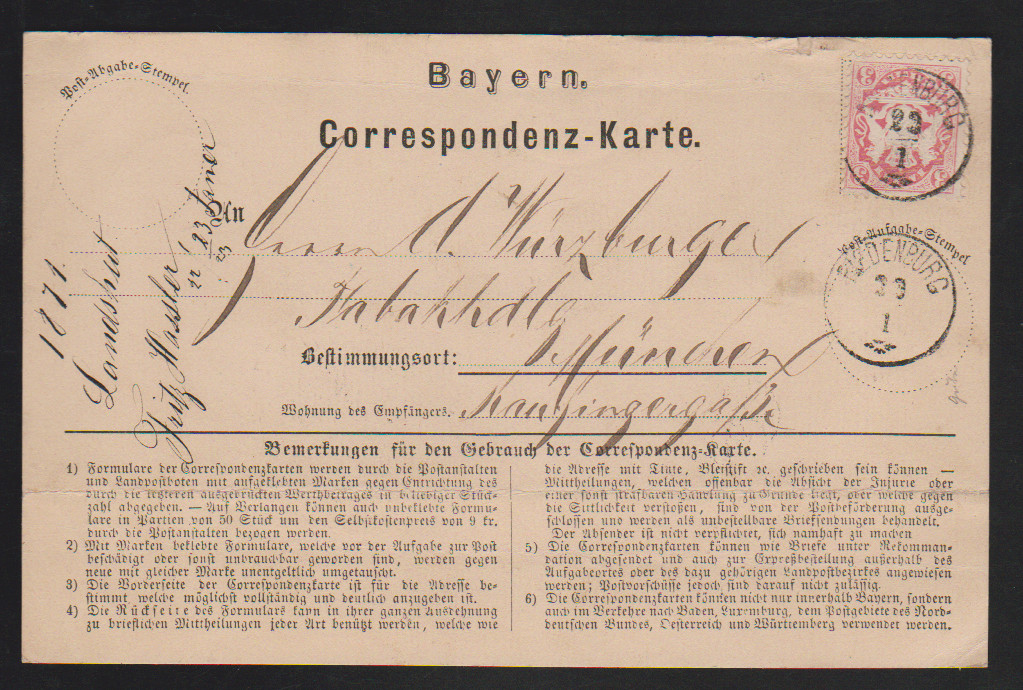 Bayern.
Correspondenz-Karte.
Post-Abgabe-Stempel
Post-Aufgabe-Stempel
RIEDENBURG
23
1
RIEDENBURG
23
1
An
Herrn A. Würzburger
Tabakhdlg
Bestimmungsort: München
Wohnung des Empfängers. Kaufingergaße
1871.
Landshut
Fritz Hassler
22 23 Janer
23
Bemerkungen für den Gebrauch der Correspondenz-Karte.
1) Formulare der Correspondenzkarten werden durch die Postanstalten
und Landpostboten mit aufgeklebten Marken gegen Entrichtung des
durch die letzteren ausgedrückten Werthbetrages in beliebiger Stück-
zahl abgegeben. — Auf Verlangen können auch unbeklebte Formu-
lare in Partien von 50 Stück um den Selbstkostenpreis von 9 kr.
durch die Postanstalten bezogen werden.
2) Mit Marken beklebte Formulare, welche vor der Aufgabe zur Post
beschädigt oder sonst unbrauchbar geworden sind, werden gegen
neue mit gleicher Marke unentgeltlich umgetauscht.
3) Die Vorderseite der Correspondenzkarte ist für die Adresse be-
stimmt, welche möglichst vollständig und deutlich anzugeben ist.
4) Die Rückseite des Formulars kann in ihrer ganzen Ausdehnung
zu brieflichen Mittheilungen jeder Art benützt werden, welche wie
die Adresse mit Tinte, Bleistift ꝛc. geschrieben sein können —
Mittheilungen, welchen offenbar die Absicht der Injurie oder
einer sonst strafbaren Handlung zu Grunde liegt, oder welche gegen
die Sittlichkeit verstoßen, sind von der Postbeförderung ausge-
schlossen und werden als unbestellbare Briefsendungen behandelt.
Der Absender ist nicht verpflichtet, sich namhaft zu machen
5) Die Correspondenzkarten können wie Briefe unter Rekomman-
dation abgesendet und auch zur Expreßbestellung außerhalb des
Aufgabeortes oder des dazu gehörigen Landpostbezirkes angewiesen
werden; Postvorschüsse jedoch sind darauf nicht zulässig.
6) Die Correspondenzkarten können nicht nur innerhalb Bayern, sondern
auch im Verkehre nach Baden, Luxemburg, dem Postgebiete des Nord-
deutschen Bundes, Oesterreich und Württemberg verwendet werden.